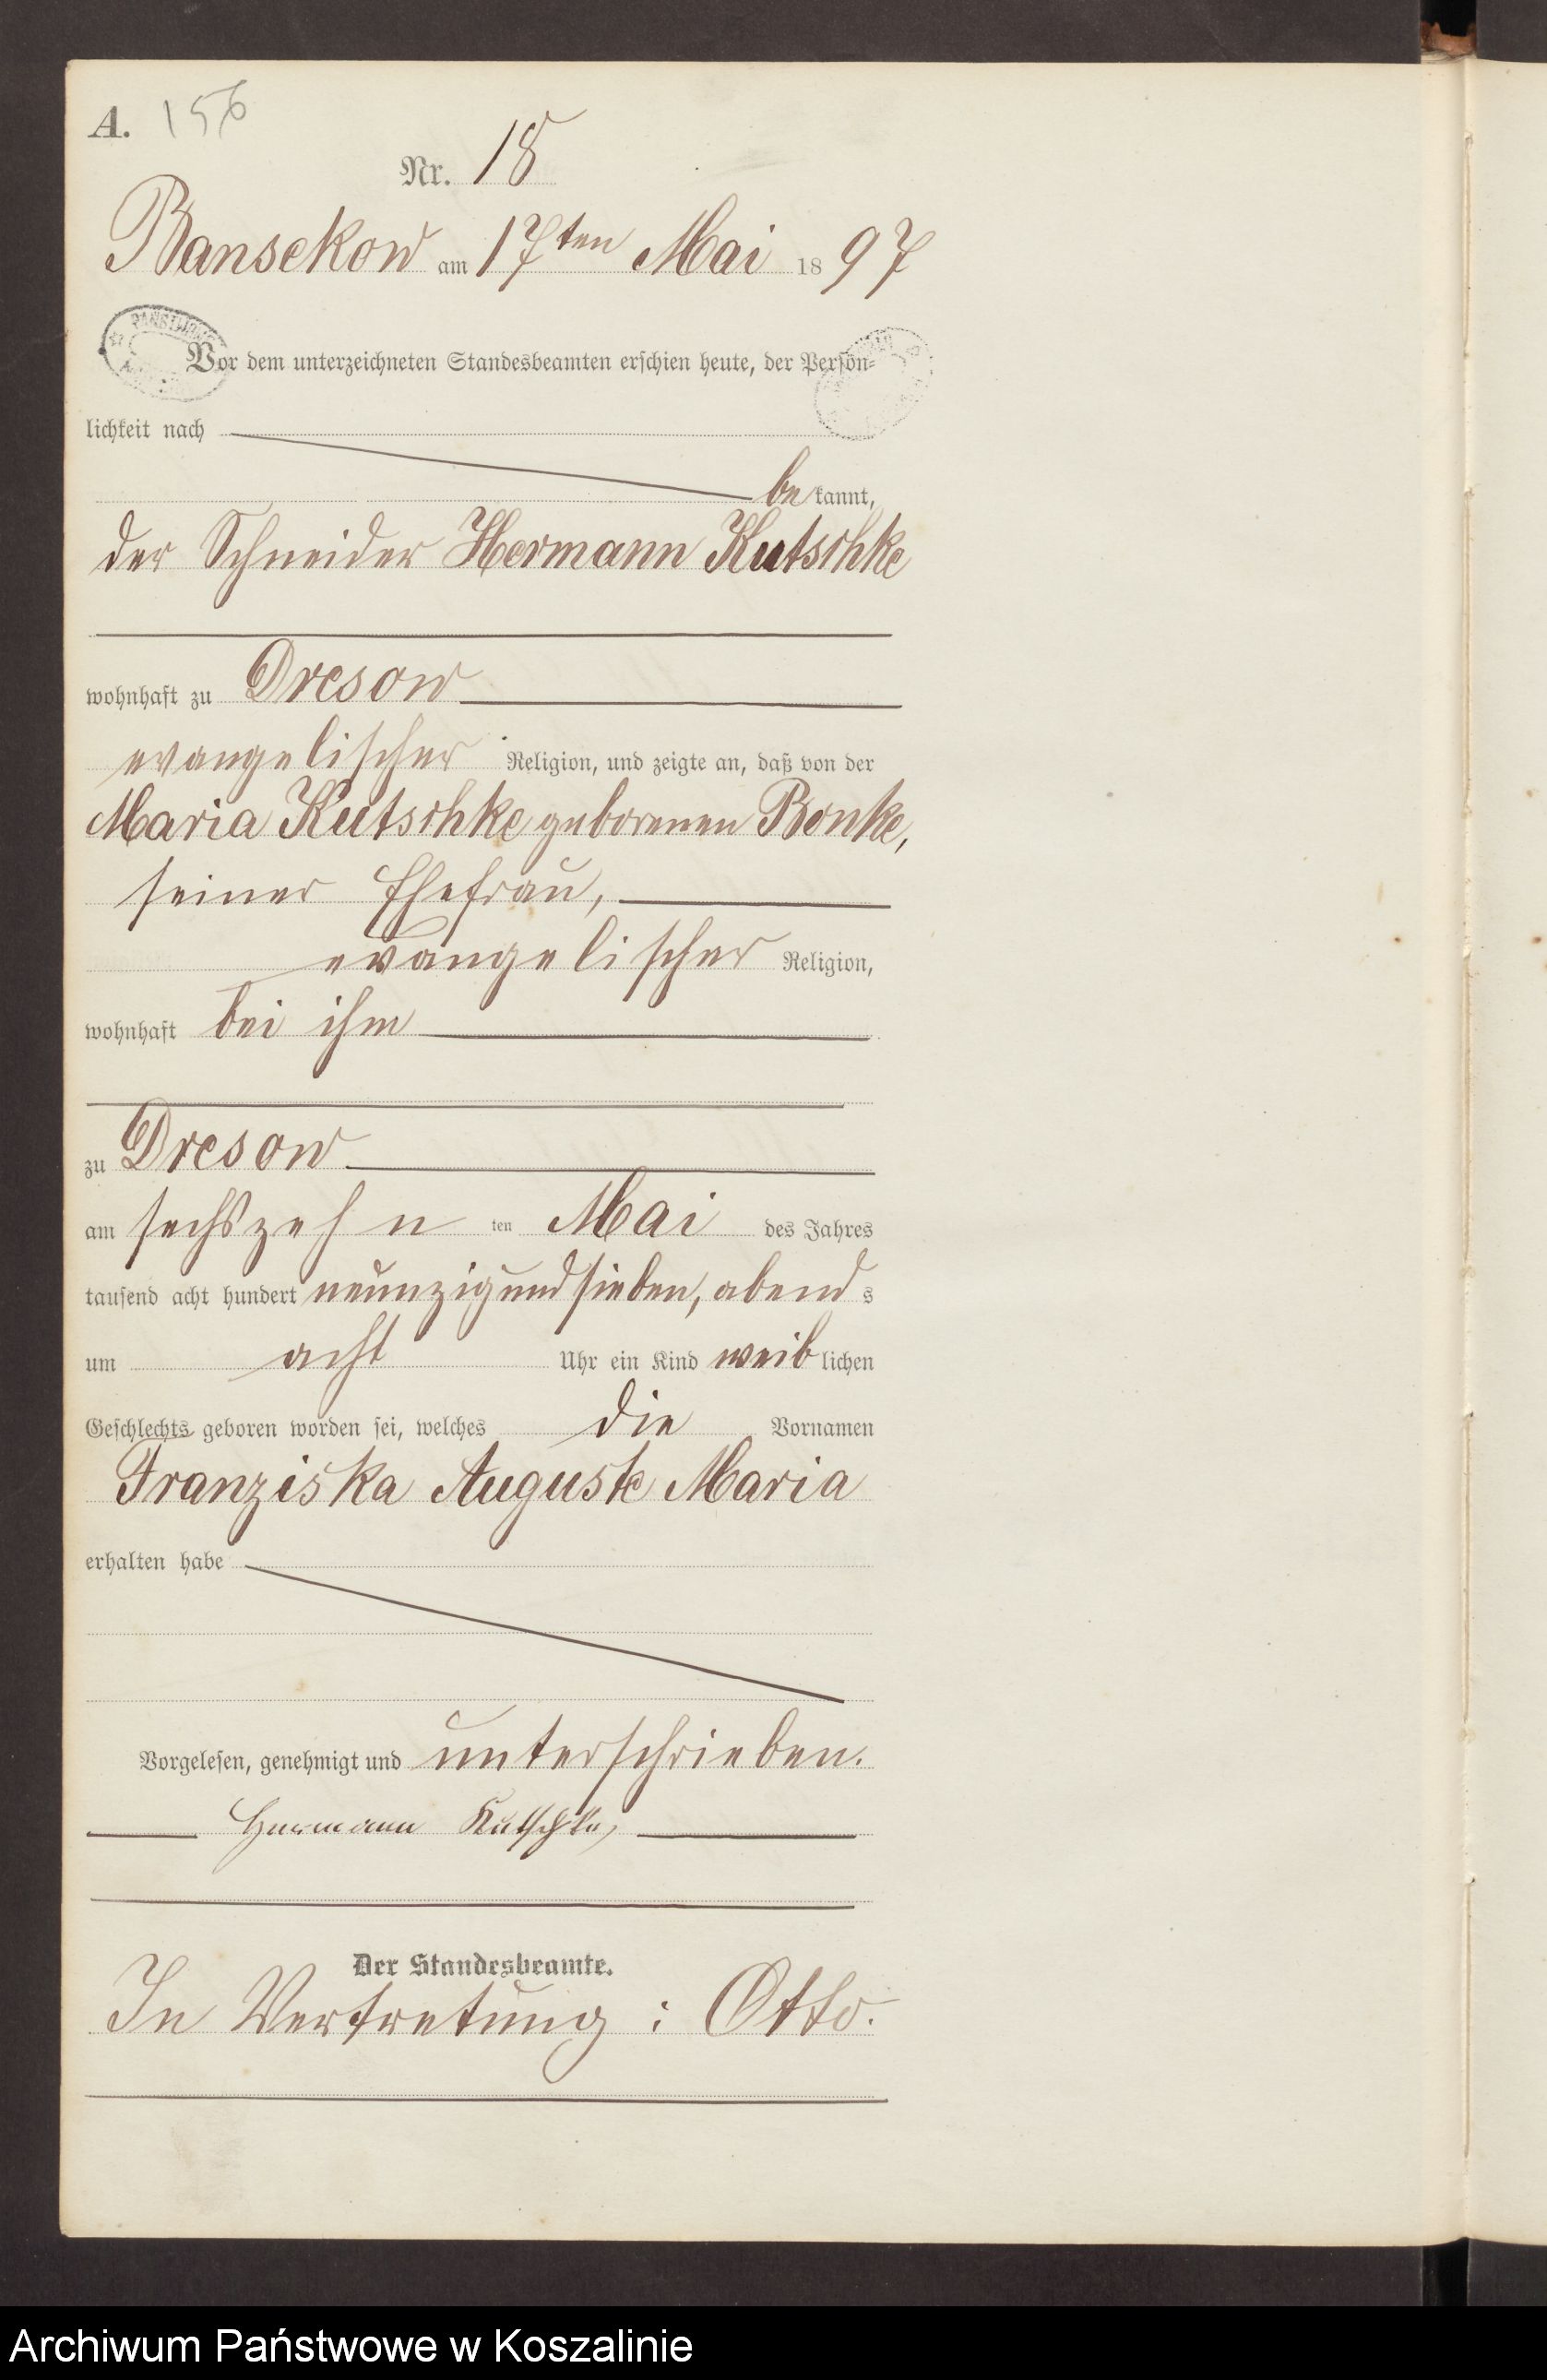 A. 156
Nr. 18
Bansekow am 17ten Mai 1897
Vor dem unterzeichneten Standesbeamten erschien heute, der Persön-
lichkeit nach
bekannt,
der Schneider Hermann Kutschke
wohnhaft zu Dresow
evangelischer Religion, und zeigte an, daß von der
Maria Kutschke geborenen Bonke,
seiner Ehefrau,
evangelischer Religion,
wohnhaft bei ihm
zu Dresow
am sechszehn ten Mai des Jahres
tausend acht hundert neunzig und sieben, abends
um acht Uhr ein Kind weiblichen
Geschlechts geboren worden sei, welches die Vornamen
Franziska Auguste Maria
erhalten habe
Vorgelesen, genehmigt und unterschrieben.
Hermann Kutschke,
Der Standesbeamte.
In Vertretung: Otto.
Archiwum Państwowe w Koszalinie